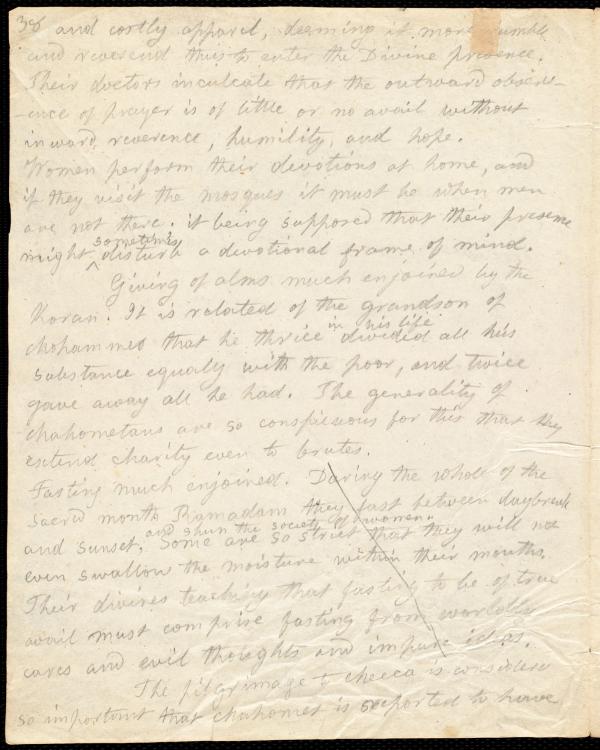 38 and costly apparel, deeming it more humble
and reverend thus to enter the Divine presence.
Their doctors inculcate that the outward observ-
-ence of prayer is of little or no avail without
inward reverence, humility, and hope.
Women perform their devotions at home, and
if they visit the mosques it must be when men
are not there. it being supposed that their presense
sometimes
might ^ disturb a devotional frame of mind.
Giving of alms much enjoined by the
Koran. It is related of the grandson of
in his life
Mohammed that he thrice divided all his
substance equaly with the poor, and twice
gave away all he had. The generality of
Mahometans are so conspicuous for this that they
extend charity even to brutes.
Fasting much enjoined. During the whole of the
sacred month Ramadam they fast between daybreak
and shun the society of women.
and sunset. Some are so strict that they will not
even swallow the moisture within their mouths.
Their divines teaching that fasting to be of true
avail must comprise fasting from worldly
cares and evil thoughts and impure ideas.
The pilgrimage to Mecca is considered
so important that Mahomet is reported to have